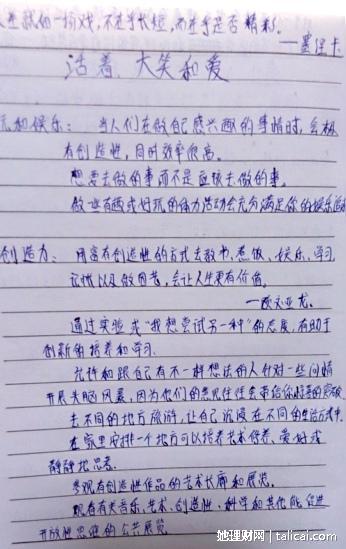 人生就如一场戏，不在乎长短，而在乎是否精彩。
——塞涅卡
活着、大笑和爱
玩和娱乐：当人们在做自己感兴趣的事情时，会极
有创造性，同时效率很高。
想要去做的事而不是应该去做的事。
做一些有趣或好玩的体力活动会充分满足你的娱乐
创造力：用富有创造性的方式去教书、煮饭、娱乐、学习、
记忆以及做园艺，会让人生更有价值。
——欧文·亚龙
通过实验或“我想尝试另一种”的态度，有助于
创新的培养和学习.
允许和跟自己有不一样想法的人针对一些问题
开展头脑风暴，因为他们的意见往往会带给你惊喜的突破
去不同的地方旅游，让自己沉浸在不同的生活方式中.
在家里安排一个地方可以培养艺术修养、爱好或
静静地思考.
参观有创造性作品的艺术长廊和展览.
观看有关音乐、艺术、创造性、科学和其他能促进
开放性思维的公共展览
她理财网 | talicai.com